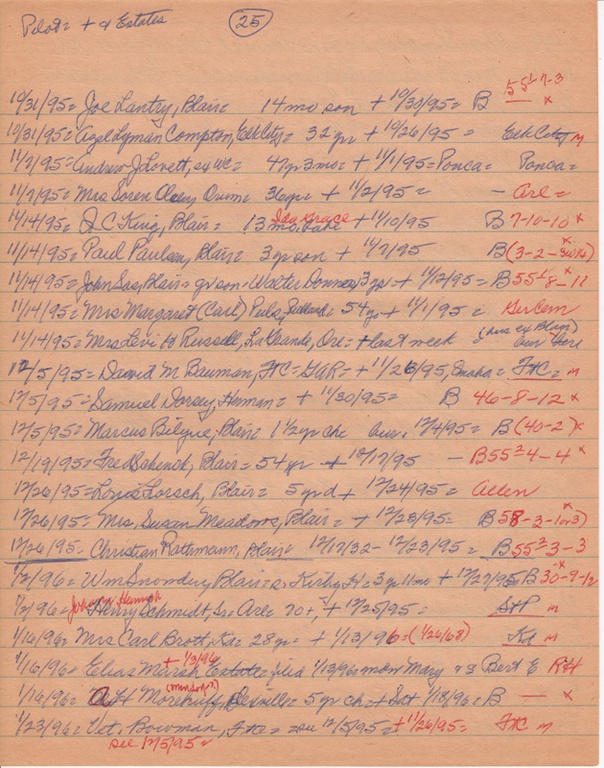 Pilot = + & Estates 25
55½ 7-3
10/31/95 = Joe Lantry, Blair = 14 mo son + 10/30/95 = B — x
10/31/95 = Azel Lyman Compton, Elk City = 32 yr + 10/26/95 = Elk City m
11/7/95 = Andrew J Lovett, ex WC = 47 yr 3 mo = + 11/1/95 = Ponca = Ponca =
11/7/95 = Mrs Soren Olsen, Orum = 36 yr = + 11/2/95 = — Arl =
Ida Grace
11/14/95 = J C King, Blair = 13 mo + 11/10/95 B 7-10-10 x
11/14/95 = Paul Paulsen, Blair = 3 yr son + 11/7/95 B (3-2- x
11/14/95 = John Sas, Blair = gr son = Walter 3 yr = + 11/12/95 = B 55½ 8-11 x
11/14/95 = Mrs Margaret (Carl) = 54 yr + 11/1/95 = Ger Cem
11/14/95 = Mrs Levi H Russell, LaGrande, Ore = + last week = (was ex Blair) bur here
12/5/95 = David M Bauman, FtC = GAR = + 11/26/95, Omaha = FtC = m
12/5/95 = Samuel Dorsey, Herman = + 11/30/95 = B 46-8-12 x
12/5/95 = Marcus Bilyue, Blair = 1 1/2 yr chc bur. 12/4/95 = B (40-2) x
12/19/95 = Fred Sahendt, Blair = 54 yr + 12/17/95 — B 55² 4-4 x
12/26/95 = Louis Lorsch, Blair = 5 yr d + 12/24/95 = Allen
12/26/95 = Mrs. Susan Meadows, Blair = + 12/23/95 = B 58-3-1 or 3) x
12/26/95 = Christian Rathmann, Blair = 12/17/32 – 12/23/95 = B 55² 3-3
1/2/96 = Wm Snowdery Blair = s. Kirby H = 3 yr 11 mo + 12/27/95 B 30-9-12 x
Johann Heinrich
1/2/96 = Henry Schmidt, Sr = Arl = 70+, + 12/25/95 = StP m
1/14/96 = Mrs Carl Brott, Kd = 28 yr = + 1/13/96 = (1/26/68) Kd m
+ 1/3/96
1/16/96 = Elias Mirsh Estate = filed 1/13/96 = Mary & s Bert E R&H
1/14/96 = A H Morehuff, = 5 yr ch = + Sat 1/18/96 = B — x
1/23/96 = Vet. Bowman, FtC = see 12/5/95 = + 11/26/95 = FtC m
see 12/5/95 =